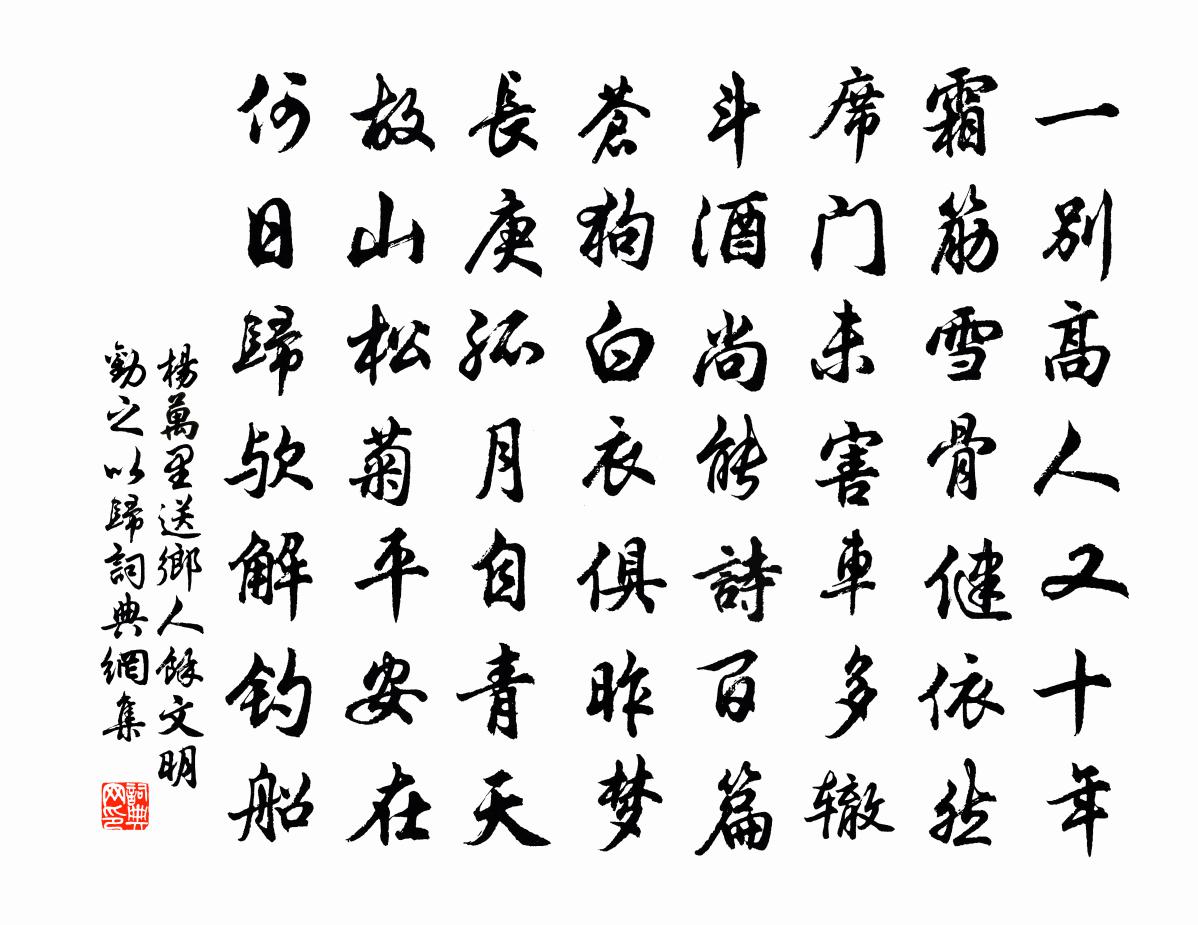 一別高人又十年
霜筋雪骨健依然
席门未害車多辙
斗酒尚能詩百篇
蒼狗白衣俱昨梦
長庚孤月自青天
故山松菊平安在
何日歸欤解钓船
楊萬里送鄉人餘文明
勸之以歸詞典網集
詞典网印